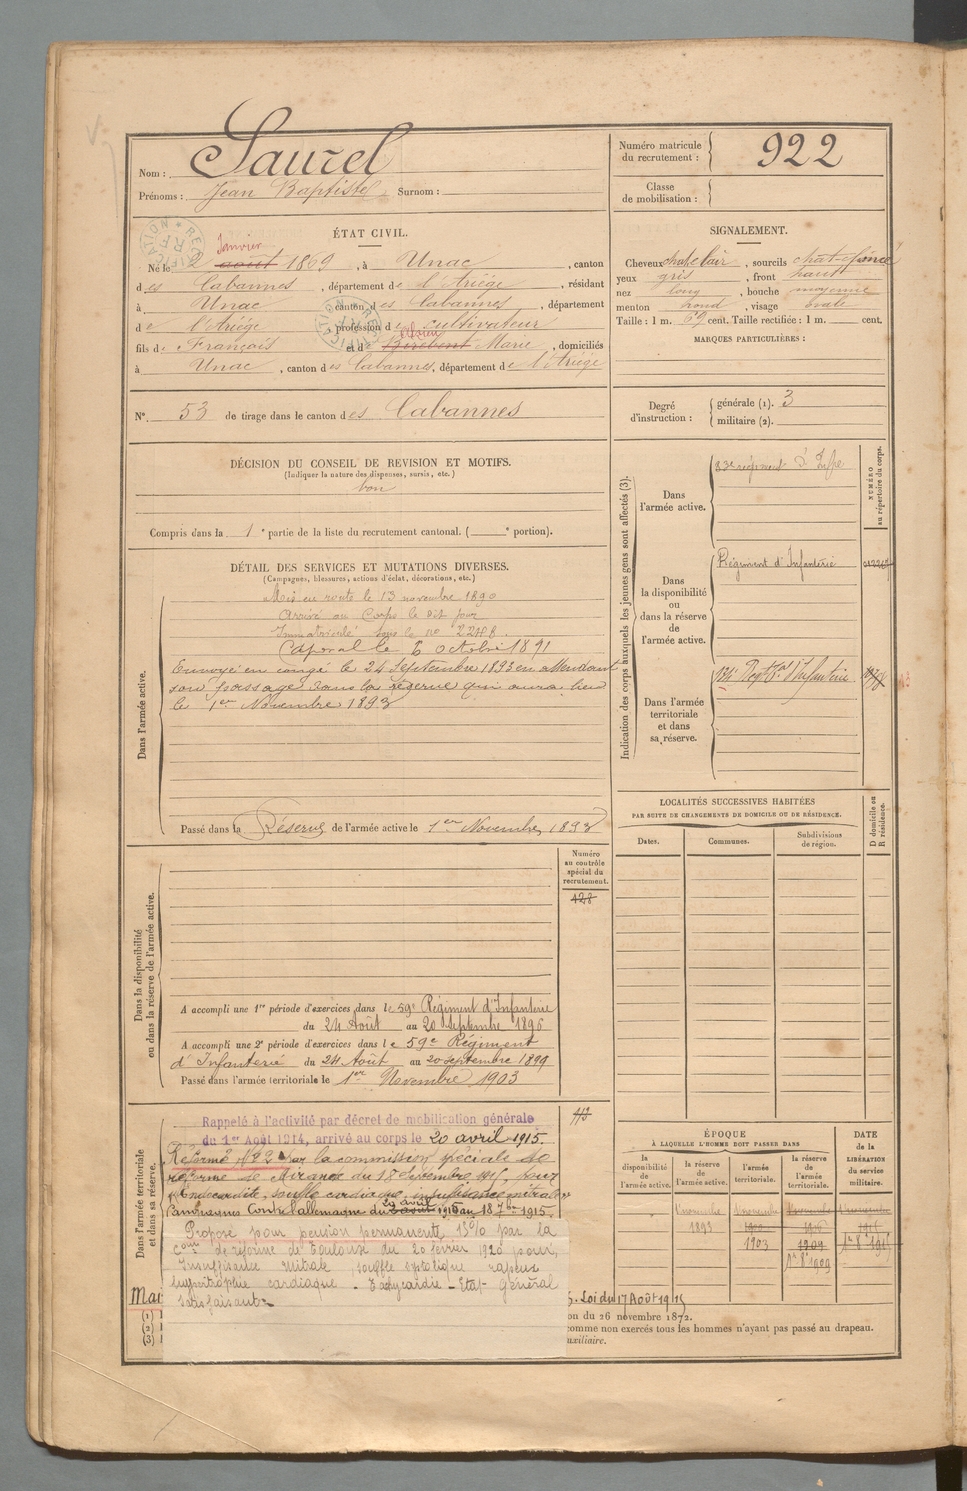 Nom : Saurel
Prénoms : Jean Baptiste Surnom :
Numéro matricule du recrutement : 922
Classe de mobilisation :
ÉTAT CIVIL.
Janvier
Né le 2 août 1869, à Unac, canton
des Cabannes, département de l'Ariège, résidant
à Unac, canton des Cabannes, département
de l'Ariège, profession de cultivateur
fils de François et d Marie, domiciliés
à Unac, canton des Cabannes, département de l'Ariège
N° 53 de tirage dans le canton des Cabannes
SIGNALEMENT.
Cheveux chat clair, sourcils chat-foncé
yeux gris, front haut
nez long, bouche moyenne
menton rond, visage ovale
Taille : 1 m. 69 cent. Taille rectifiée : 1 m. cent.
MARQUES PARTICULIÈRES :
Degré d'instruction : générale (1). 3
militaire (2).
DÉCISION DU CONSEIL DE REVISION ET MOTIFS.
(Indiquer la nature des dispenses, sursis, etc.)
bon
Compris dans la 1e partie de la liste du recrutement cantonal. ( e portion).
DÉTAIL DES SERVICES ET MUTATIONS DIVERSES.
(Campagnes, blessures, actions d'éclat, décorations, etc.)
Dans l'armée active.
Mis en route le 13 novembre 1890
Arrivé au Corps le dit jour
Immatriculé sous le no
Caporal le 6 octobre 1891
Envoyé en congé le 24 Septembre 1893 en attendant
son passage dans la réserve qui aura lieu
le 1er Novembre 1893
Passé dans la Réserve de l'armée active le 1er Novembre 1893
Indication des corps auxquels les jeunes gens sont affectés (3).
NUMÉRO au répertoire du corps.
Dans l'armée active.
83e régiment d'Infie
Dans la disponibilité ou dans la réserve de l'armée active.
Régiment d'Infanterie
Dans l'armée territoriale et dans sa réserve.
134e Regt Tal d'Infanterie
LOCALITÉS SUCCESSIVES HABITÉES
PAR SUITE DE CHANGEMENTS DE DOMICILE OU DE RÉSIDENCE.
Dates. Communes. Subdivisions de région. D domicile ou R résidence.
Dans la disponibilité ou dans la réserve de l'armée active.
Numéro au contrôle spécial du recrutement.
428
A accompli une 1re période d'exercices dans le 59e Régiment d'Infanterie
du 24 Août au 20 Septembre 1896
A accompli une 2e période d'exercices dans le 59e Régiment
d'Infanterie du 24 Août au 20 septembre 1899
Passé dans l'armée territoriale le 1er Novembre 1903
Dans l'armée territoriale et dans sa réserve.
Rappelé à l'activité par décret de mobilisation générale
du 1er Août 1914, arrivé au corps le 20 avril 1915.
Réformé N° 2 par la commission spéciale de
réforme de Mirande du 18 Septembre 1915, pour
Endocardite, souffle cardiaque, insuffisance mitrale
Campagnes Contre l'allemagne du 20 avril 1915 au 18 7bre 1915.
Proposé pour pension permanente 15% par la
con de réforme de Toulouse du 20 février 1920 pour,
Insuffisance mitrale souffle systolique rapeux
hypertrophie cardiaque - Tachycardie - Etat Général
satisfaisant.
ÉPOQUE
À LAQUELLE L'HOMME DOIT PASSER DANS
DATE de la LIBÉRATION du service militaire.
la disponibilité de l'armée active. la réserve de l'armée active. l'armée territoriale. la réserve de l'armée territoriale.
1 novembre 1893
1903
1909
1er 8e 1909
Mar
5. Loi du 17 Août 1915
(1)
(2)
(3)
on du 26 novembre 1872.
comme non exercés tous les hommes n'ayant pas passé au drapeau.
auxiliaire.